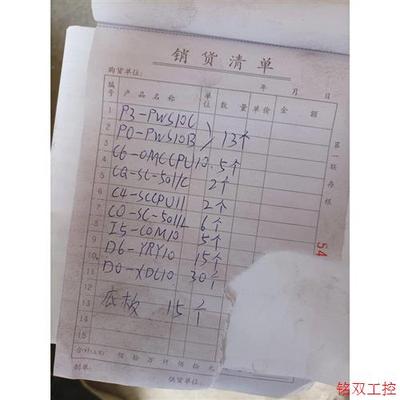 销货清单
购货单位: 年 月 日
编号 产品名称 单位 数量 单价 金额
1 P3-PWS10C
2 P0-PWS10B 13个
3 C6-OMCCPU10 5个
4 CQ-SC-5011C 2个
5 C4-SCCPU11 2个
6 C0-SC-5011L 6个
7 I5-COM10 5个
8 D6-YRY10 15个
9 D0-XDC10 30个
10
11
12 底板 15个
13
14
15
合计 佰 拾 万 仟 佰 拾 元
制单: 供货单位:
第一联存根
54
铭双工控